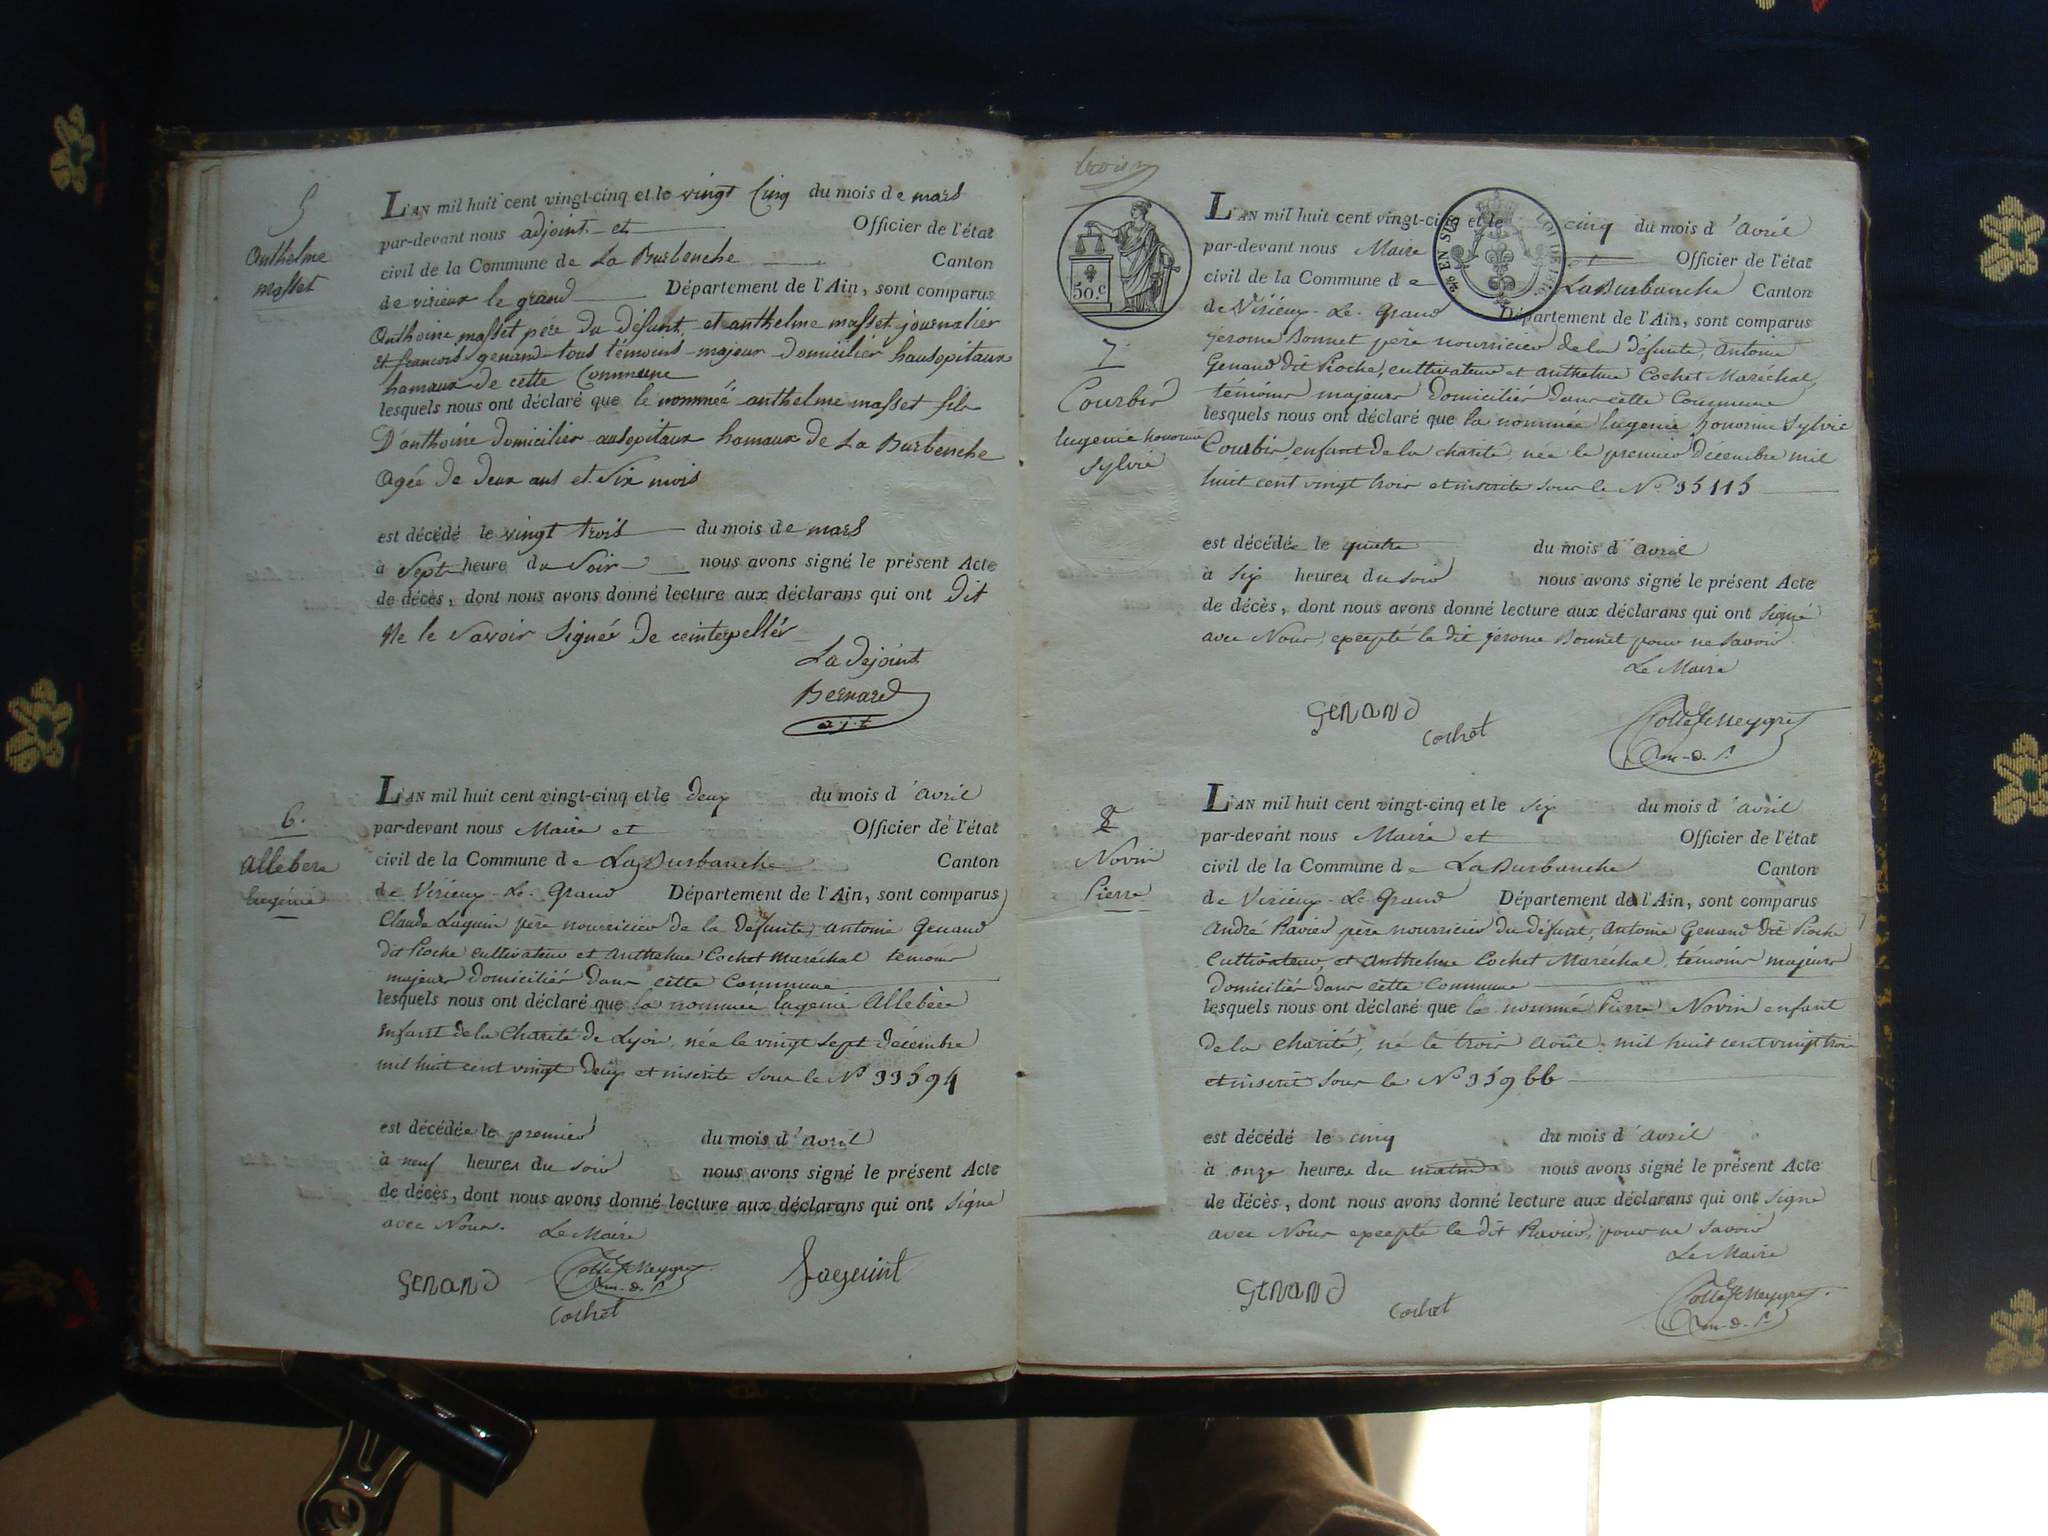 5
Anthelme
masset
L'AN mil huit cent vingt-cinq et le vingt Cinq du mois de mars
par-devant nous adjoint et Officier de l'état
civil de la Commune de La Burbenche Canton
de virieux le grand Département de l'Ain, sont comparus
Anthoine masset père du défunt et anthelme masset journalier
et francois genand tous témoins majeur domicilier hausopitaux
hamaux de cette Commune
lesquels nous ont déclaré que le nommée anthelme masset fils
D'anthoine domicilier ausopitaux hamaux de La Burbenche
Agée de deux ans et Six mois
est décédé le vingt trois du mois de mars
à Sept heure du Soir nous avons signé le présent Acte
de décès, dont nous avons donné lecture aux déclarans qui ont dit
Ne le Savoir Signée de ceinterpellér
La dejoint
Bernard
a.j.t
6.
Allebere
Eugénie
L'AN mil huit cent vingt-cinq et le deux du mois d'avril
par-devant nous Maire et Officier de l'état
civil de la Commune de LaBurbanche Canton
de Virieux-Le-Grand Département de l'Ain, sont comparus
Claude Laguin père nourricier de la défunte, antoine Genand
dit Pioche cultivateur et Anthelme Cochet Maréchal témoins
majeurs domiciliés dans cette Commune
lesquels nous ont déclaré que la nommée Eugenie Allebère
enfant de la Charité de Lyon, née le vingt sept décembre
mil huit cent vingt deux et inscrite sous le Nº 33594
est décédée le premier du mois d'avril
à neuf heures du soir nous avons signé le présent Acte
de décès, dont nous avons donné lecture aux déclarans qui ont signé
avec Nous. Le Maire
GENAND
Cochet
troisⁿ
50.c
25 EN SUS
LOI DE 1816
7
Courbir
Eugenie honorine
Sylvie
L'AN mil huit cent vingt-cinq et le cinq du mois d'avril
par-devant nous Maire et Officier de l'état
civil de la Commune de LaBurbanche Canton
de Virieux-Le-Grand Département de l'Ain, sont comparus
jerome Bonnet père nourricier de la défunte, Antoine
Genand dit Pioche, cultivateur et anthelme Cochet Maréchal,
témoins majeurs domiciliés dans cette Commune
lesquels nous ont déclaré que la nommée Eugenie honorine Sylvie
Courbir, enfant de la charité, née le premier décembre mil
huit cent vingt trois et inscrite sous le Nº 35115
est décédée le quatre du mois d'avril
à six heures du soir nous avons signé le présent Acte
de décès, dont nous avons donné lecture aux déclarans qui ont signé
avec Nous, excepté le dit jerome Bonnet pour ne savoir
Le Maire
GENAND
Cochet
8
Novin
Pierre
L'AN mil huit cent vingt-cinq et le six du mois d'avril
par-devant nous Maire et Officier de l'état
civil de la Commune de LaBurbanche Canton
de Virieux-Le-Grand Département de l'Ain, sont comparus
André Ravier père nourricier du défunt, Antoine Genand dit Pioche
Cultivateur, et Anthelme Cochet Maréchal, témoins majeurs
domiciliés dans cette Commune
lesquels nous ont déclaré que le nommé Pierre Novin enfant
de la charité, né le trois août mil huit cent vingt trois
et inscrit sous le Nº 35966
est décédé le cinq du mois d'avril
à onze heures du matin nous avons signé le présent Acte
de décès, dont nous avons donné lecture aux déclarans qui ont signé
avec Nous excepté le dit Ravier, pour ne savoir
Le Maire
GENAND
Cochet